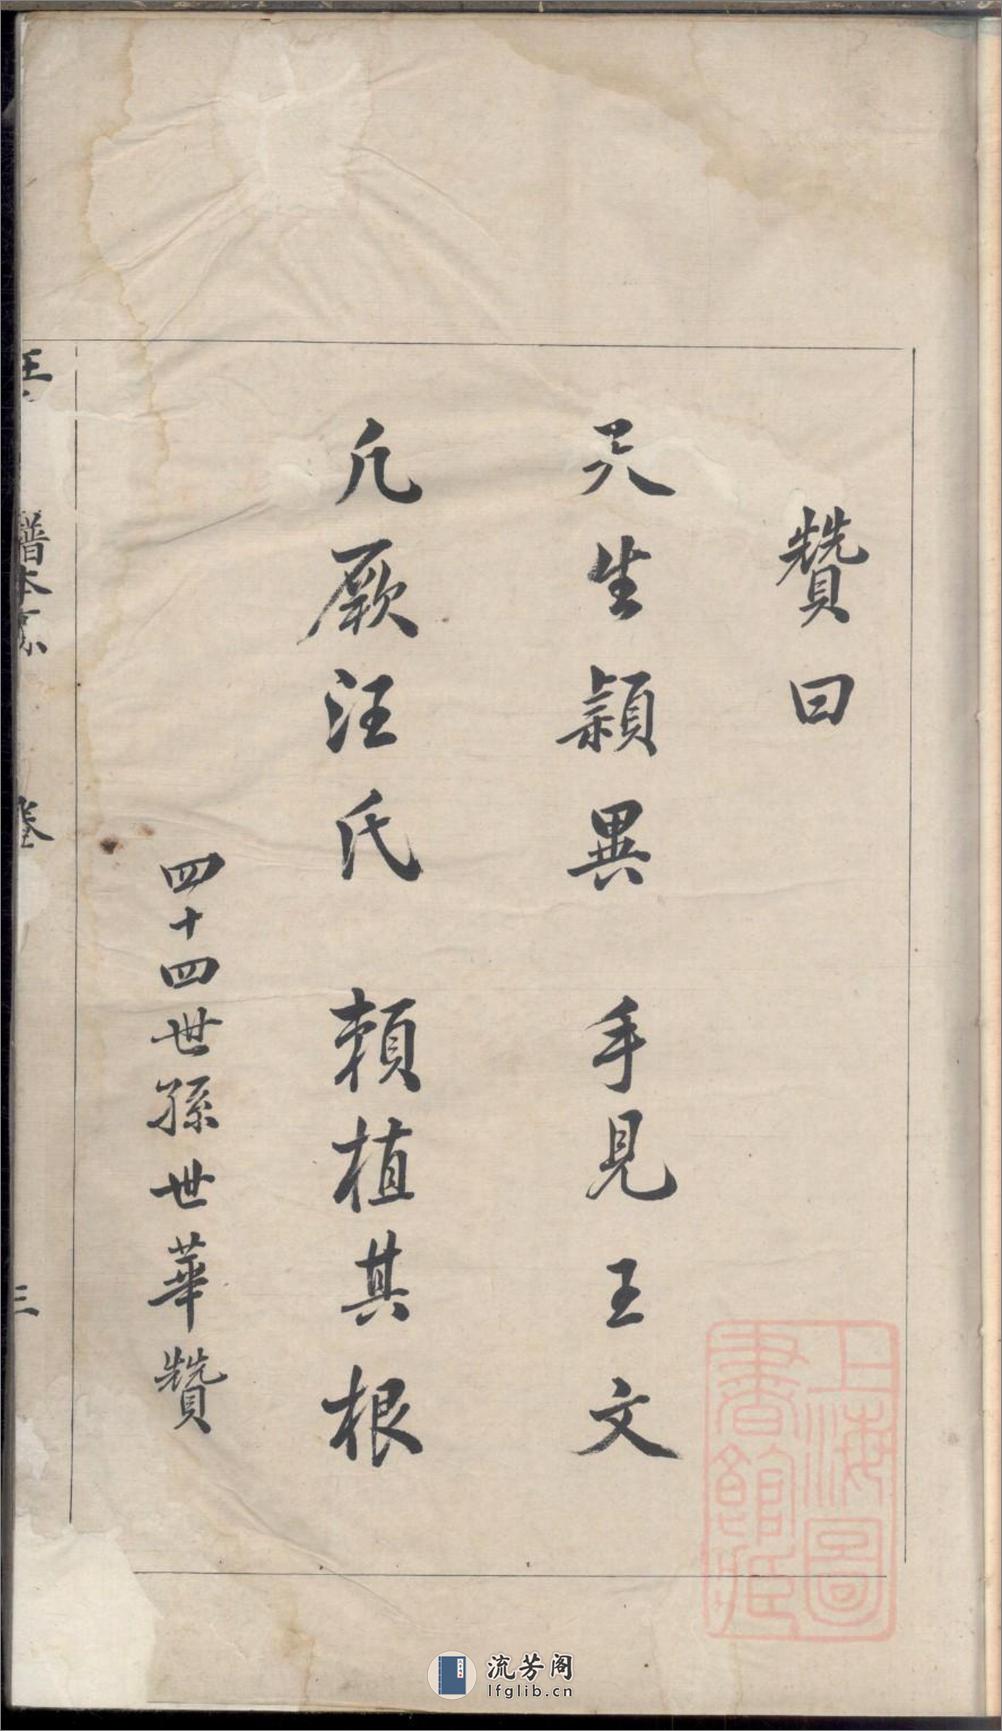 贊曰
天生穎異　手見王文
凡厥汪氏　賴植其根
四十四世孫世華贊
譜本系
卷
三
上海圖
書館藏
流芳阁
lfglib.cn